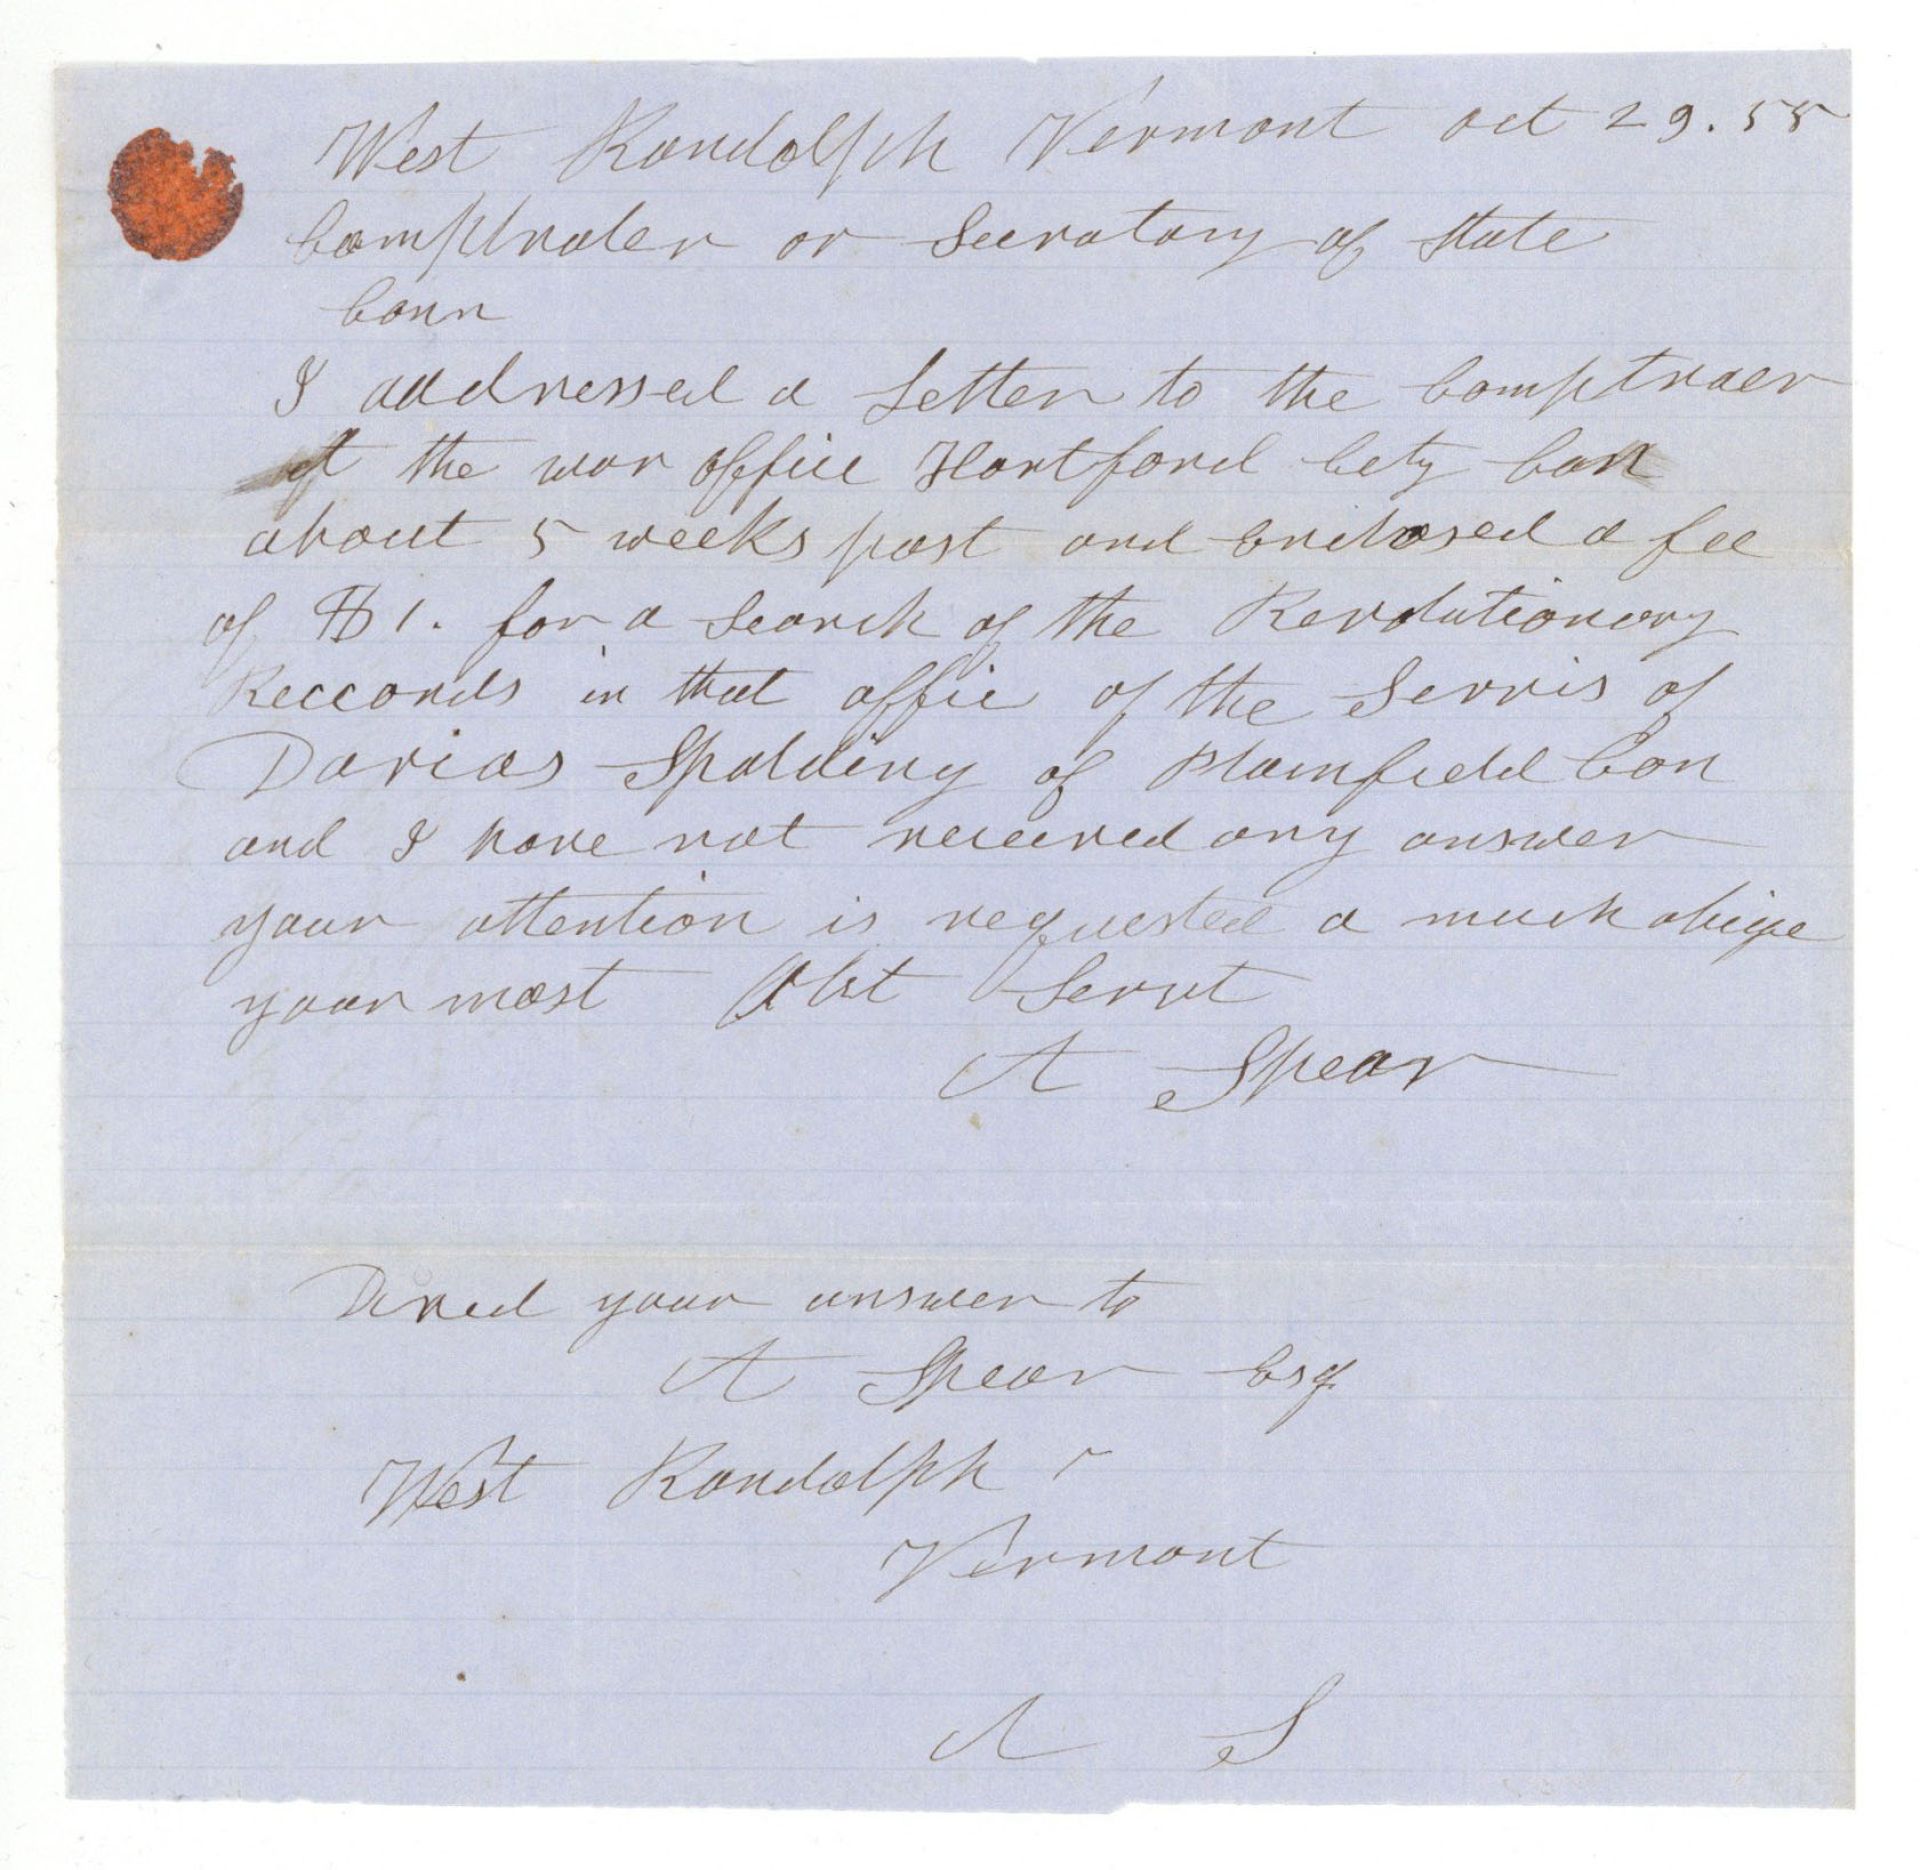 West Randolph Vermont Oct 29. 58
Comptroler or Secratary of State
Conn
I addressed a Letter to the Comptroer
at the war office Hartford Cety Con
about 5 weeks past and Enclosed a fee
of $1. for a Search of the Revolutionary
Reccords in that offic of the Servis of
Darias Spalding of Plainfield Con
and I have not received any answer
your attention is requested a much oblige
your most Obt Servt
A Spear
Direct your answer to
A Spear Esq
West Randolph
Vermont
A S